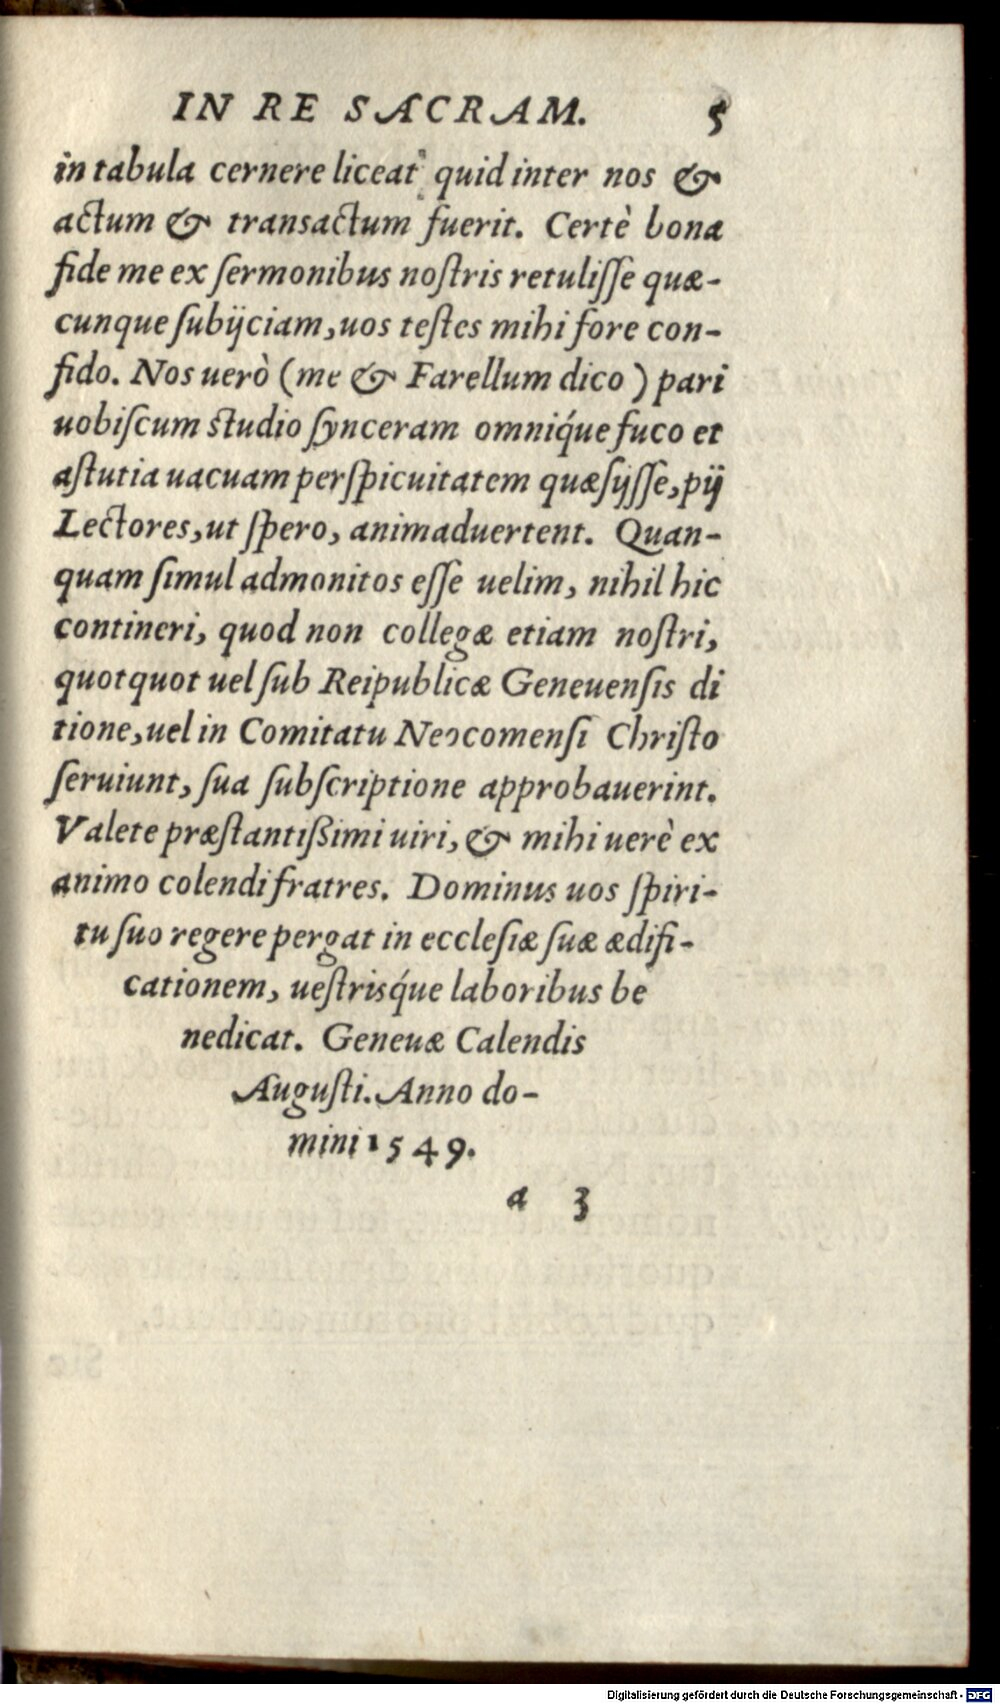 IN RE SACRAM. 5
in tabula cernere liceat quid inter nos &
actum & transactum fuerit. Certè bona
fide me ex ſermonibus noſtris retuliſſe quæ-
cunque ſubijciam, uos teſtes mihi fore con-
fido. Nos uerò (me & Farellum dico) pari
uobiſcum ſtudio ſynceram omniq́ue fuco et
aſtutia uacuam perſpicuitatem quæſijſſe, pij
Lectores, ut ſpero, animaduertent. Quan-
quam ſimul admonitos eſſe uelim, nihil hic
contineri, quod non collegæ etiam noſtri,
quotquot uel ſub Reipublicæ Geneuenſis di
tione, uel in Comitatu Neocomenſi Chriſto
ſeruiunt, ſua ſubſcriptione approbauerint.
Valete præſtantißimi uiri, & mihi uerè ex
animo colendi fratres. Dominus uos ſpiri-
tu ſuo regere pergat in eccleſiæ ſuæ ædifi-
cationem, ueſtrisq́ue laboribus be
nedicat. Geneuæ Calendis
Auguſti. Anno do-
mini 1549.
a 3
Digitalisierung gefördert durch die Deutsche Forschungsgemeinschaft - DFG